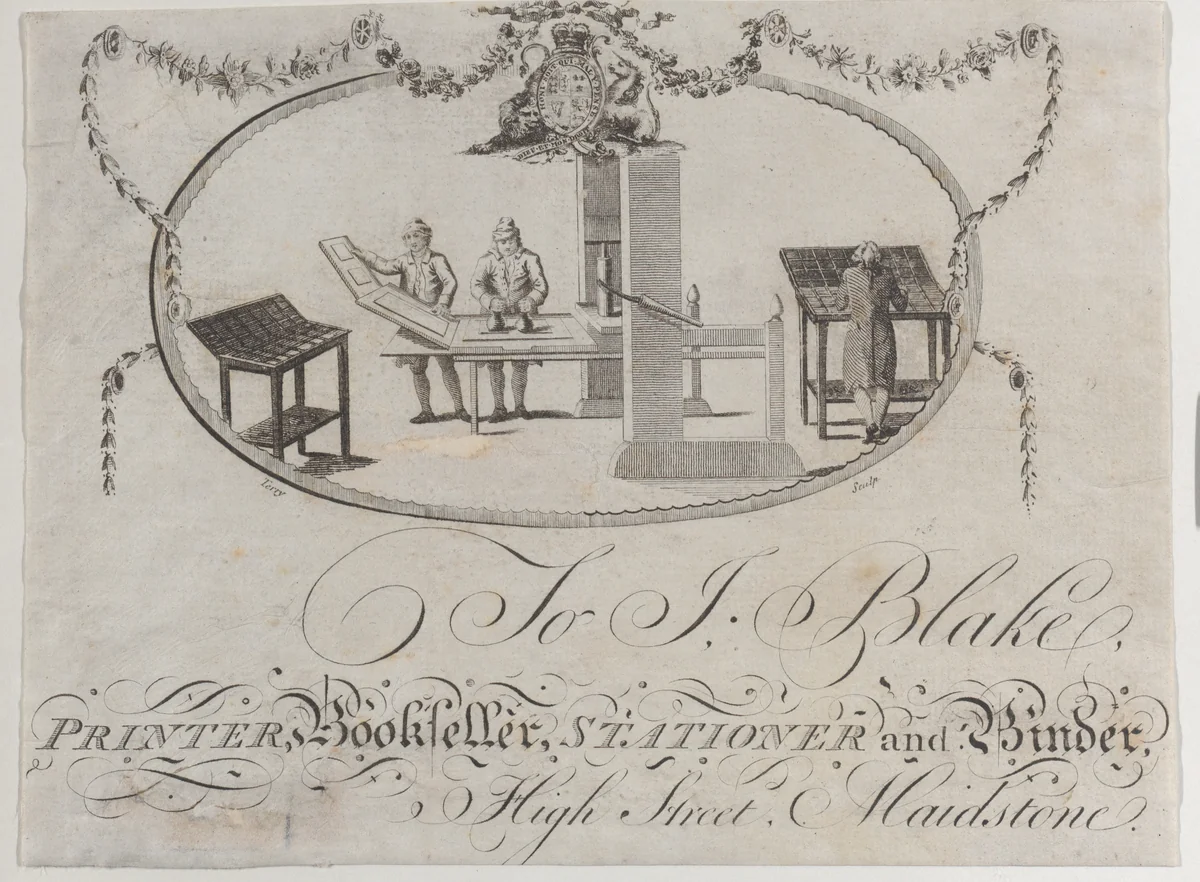 HONI SOIT QUI MAL Y PENSE
DIEU ET MON
Terry
Sculp.
To J. Blake,
PRINTER, Bookſeller, STATIONER and Binder,
High Street, Maidstone.